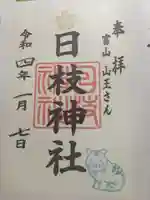 奉拝
富山 山王さん
日枝神社
令和四年一月七日